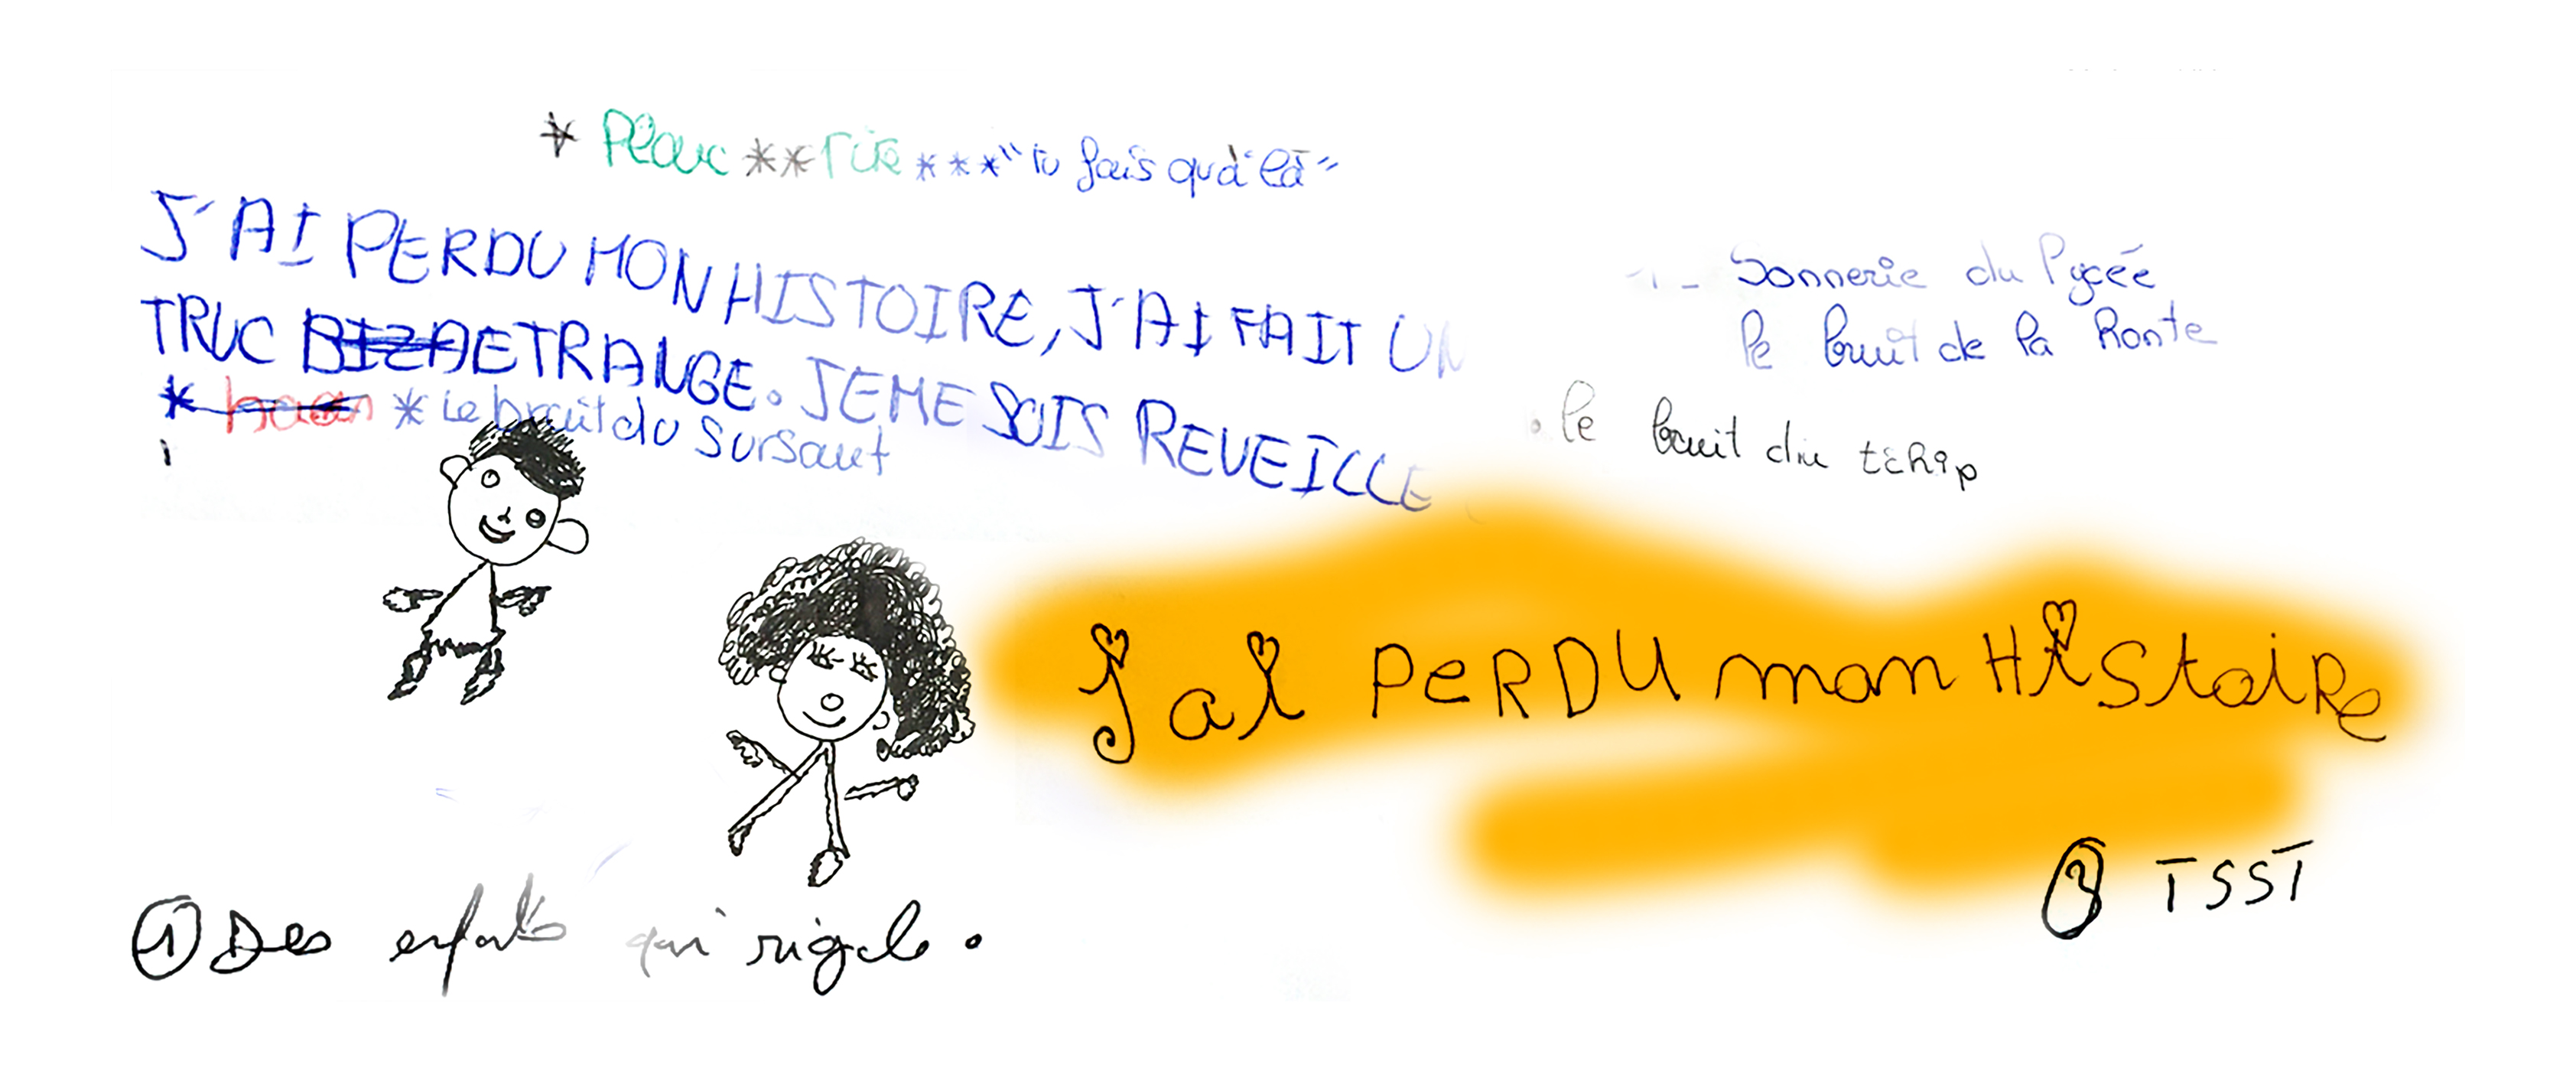 * Plouc ** rire *** "tu fais qu'à là"
J'AI PERDU MON HISTOIRE, J'AI FAIT UN
TRUC BIZA ETRANGE. JE ME SUIS REVEILLE
* haan * Le bruit du sursaut
1- Sonnerie du lycée
le bruit de la Honte
. le bruit du tchip
J'ai PERDU mon HIStoiRe
① Des enfants qui rigole.
③ TSST